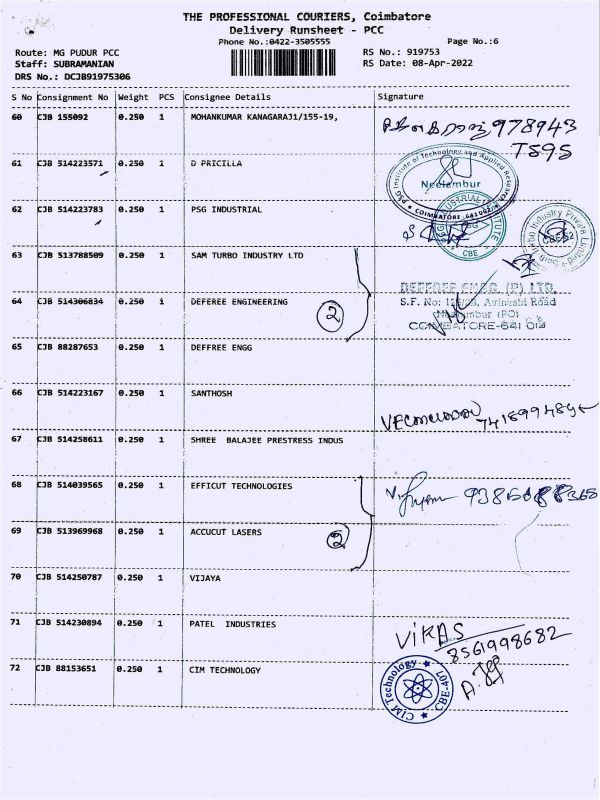 THE PROFESSIONAL COURIERS, Coimbatore
Delivery Runsheet - PCC
Phone No.:0422-3505555
Page No.:6
Route: MG PUDUR PCC
RS No.: 919753
Staff: SUBRAMANIAN
RS Date: 08-Apr-2022
DRS No.: DCJB91975306
S No Consignment No Weight PCS Consignee Details Signature
60 CJB 155092 0.250 1 MOHANKUMAR KANAGARAJ1/155-19,
978943
7595
61 CJB 514223571 0.250 1 D PRICILLA
PSG Institute of Technology and Applied Research
Neelambur
COIMBATORE
62 CJB 514223783 0.250 1 PSG INDUSTRIAL
PSG INDUSTRIAL INSTITUTE
PSG
CBE
63 CJB 513788509 0.250 1 SAM TURBO INDUSTRY LTD
Sam Turbo Industry Private Limited
64 CJB 514306834 0.250 1 DEFEREE ENGINEERING
2
DEFFREE ENGG. (P) LTD.
Avinashi Road
Neelambur (PO)
COIMBATORE-641 014
65 CJB 88287653 0.250 1 DEFFREE ENGG
66 CJB 514223167 0.250 1 SANTHOSH
67 CJB 514258611 0.250 1 SHREE BALAJEE PRESTRESS INDUS
68 CJB 514039565 0.250 1 EFFICUT TECHNOLOGIES
69 CJB 513969968 0.250 1 ACCUCUT LASERS
2
70 CJB 514250787 0.250 1 VIJAYA
71 CJB 514230894 0.250 1 PATEL INDUSTRIES
VIKAS
8561998682
72 CJB 88153651 0.250 1 CIM TECHNOLOGY
CIM Technology CBE-407